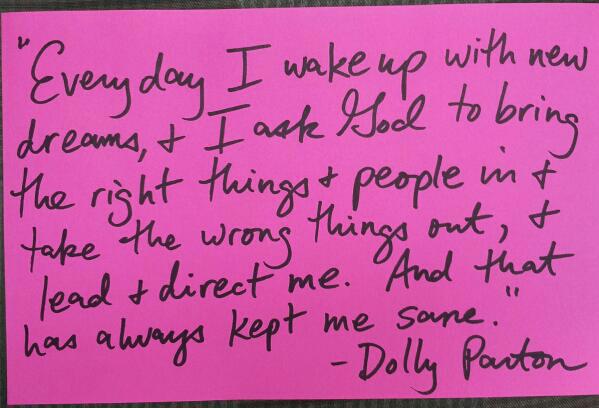 "Every day I wake up with new
dreams, & I ask God to bring
the right things & people in &
take the wrong things out, &
lead & direct me. And that
has always kept me sane."
-Dolly Parton